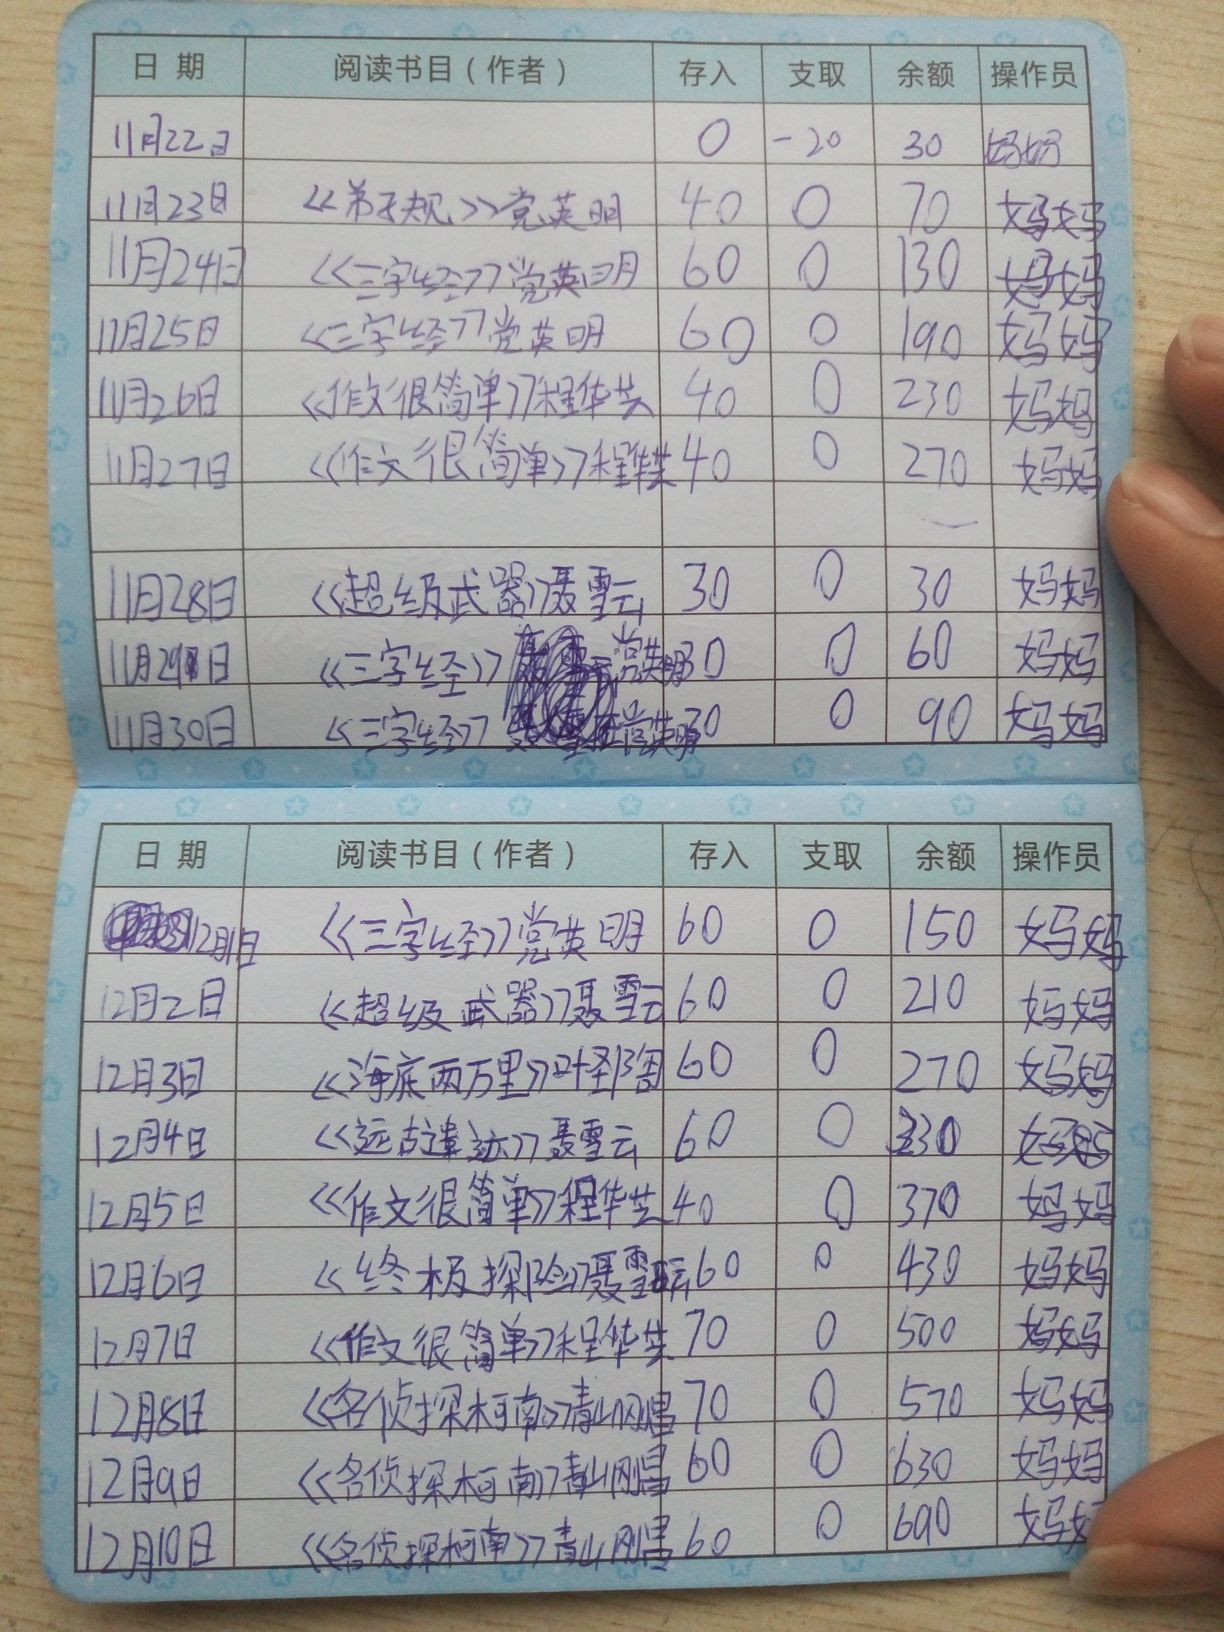 日 期 阅读书目（作者） 存入 支取 余额 操作员
11月22日 0 -20 30 妈妈
11月23日 《弟子规》党英明 40 0 70 妈妈
11月24日 《三字经》党英明 60 0 130 妈妈
11月25日 《三字经》党英明 60 0 190 妈妈
11月26日 《作文很简单》程华芸 40 0 230 妈妈
11月27日 《作文很简单》程华芸 40 0 270 妈妈
11月28日 《超级武器》聂雪云 30 0 30 妈妈
11月29日 《三字经》党英明 30 0 60 妈妈
11月30日 《三字经》党英明 30 0 90 妈妈
日 期 阅读书目（作者） 存入 支取 余额 操作员
12月1日 《三字经》党英明 60 0 150 妈妈
12月2日 《超级武器》聂雪云 60 0 210 妈妈
12月3日 《海底两万里》叶 60 0 270 妈妈
12月4日 《远古》聂雪云 60 0 330 妈妈
12月5日 《作文很简单》程华芸 40 0 370 妈妈
12月6日 《终极探险》聂雪云 60 0 430 妈妈
12月7日 《作文很简单》程华芸 70 0 500 妈妈
12月8日 《名侦探柯南》青山刚昌 70 0 570 妈妈
12月9日 《名侦探柯南》青山刚昌 60 0 630 妈妈
12月10日 《名侦探柯南》青山刚昌 60 0 690 妈妈